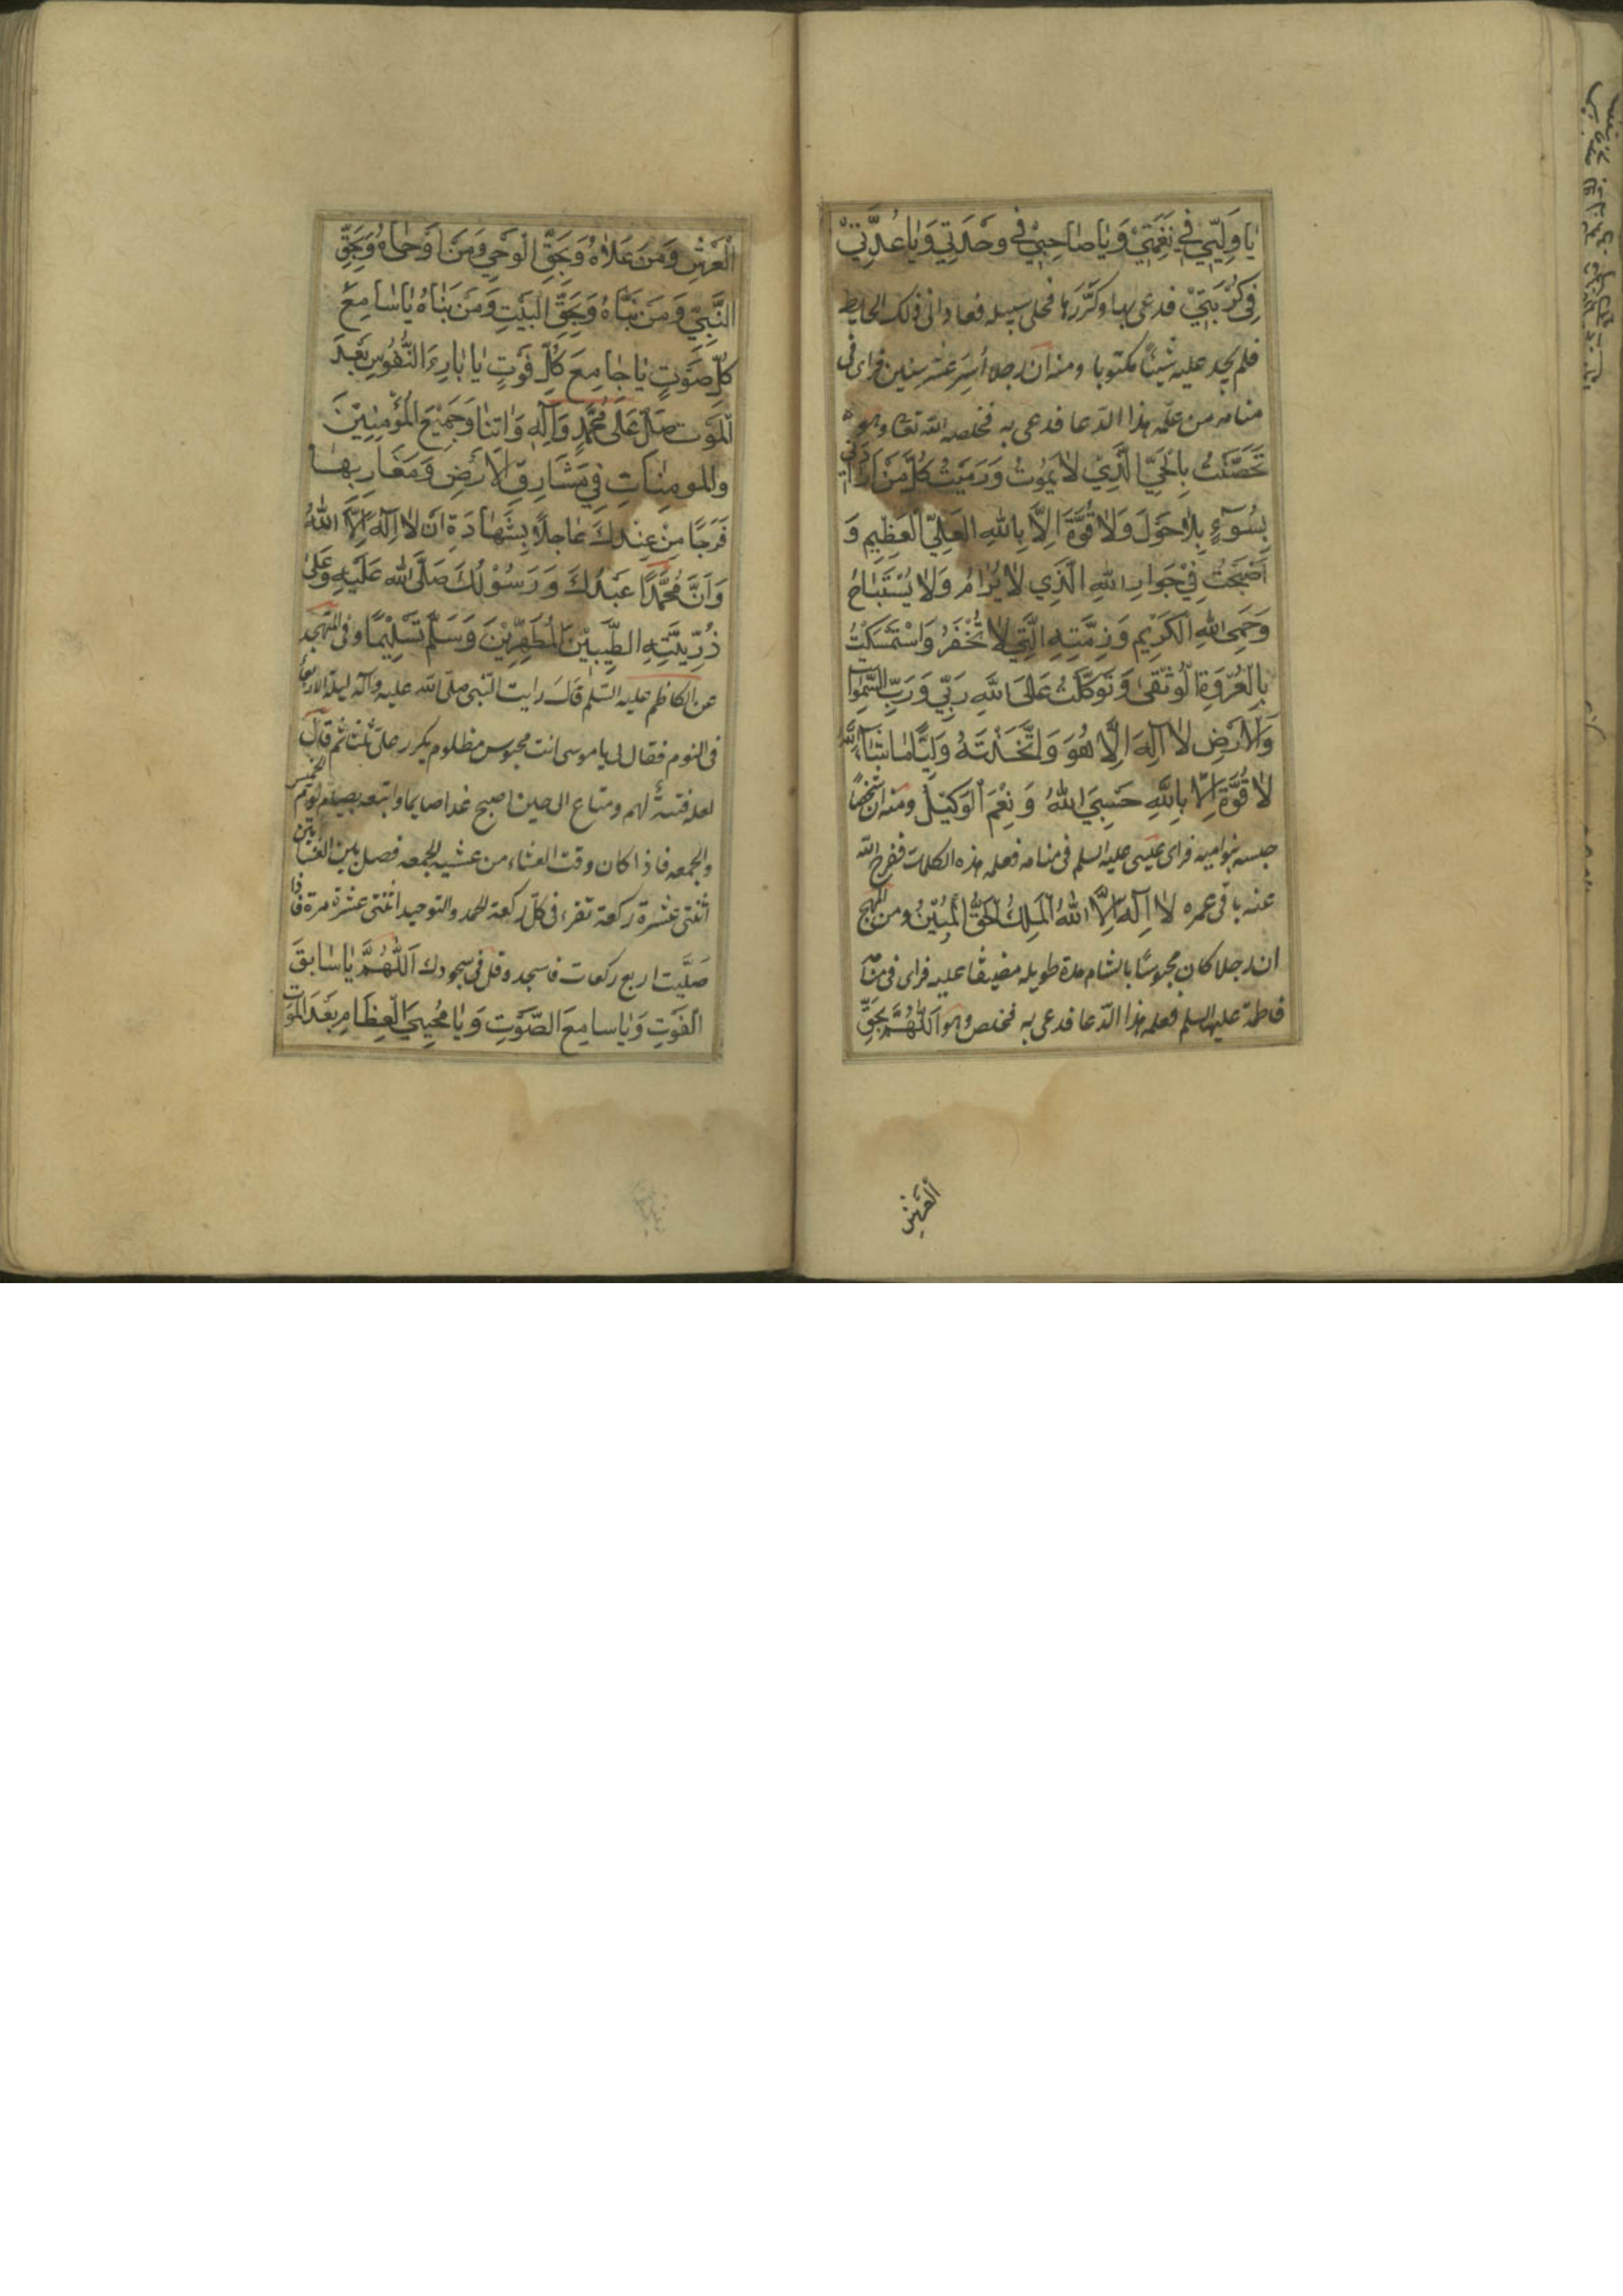 يَا وَلِيّي فِي نِعْمَتِيْ وَيَا صَاحِبِيْ فِي وَحْدَتِي وَيَا عُدَّتِيْ
فِي كُرْبَتِيْ فدعى بها وكَرَّرَها فخلى سبيله فعاد الى ذلك الحايط
فلم يجد عليه شيئاً مكتوبا ومنه ان رجلا أُسِرَ عشر سنين فراى فى
منامه من علّمه هذا الدّعا فدعى به فخلصه الله تعا وهو
تَحَصَّنْتُ بِالْحَيِّ الَّذِيْ لَا يَمُوْتُ وَرَمَيْتُ كُلَّ مَنْ اَرَادَنِي
بِسُوْءٍ بِلَا حَوْلَ وَلَا قُوَّةَ اِلَّا بِاللهِ الْعَلِيِّ الْعَظِيْمِ وَ
اَصْبَحْتُ فِيْ جَوَارِ اللهِ الَّذِي لَا يُرَامُ وَلَا يُسْتَبَاحُ
وَحِمَى اللهِ الْكَرِيْمِ وَذِمَّتِهِ الَّتِي لَا تُخْفَرُ وَاسْتَمْسَكْتُ
بِالْعُرْوَةِ الْوُثْقىٰ وَتَوَكَّلْتُ عَلَى اللهِ رَبِّي وَرَبِّ السَّمٰوَاتِ
وَالْاَرْضِ لَا اِلٰهَ اِلَّا هُوَ وَاتَّخَذْتَهُ وَلِيًّا مَا شَآءَ اللهُ
لَا قُوَّةَ اِلَّا بِاللهِ حَسْبِيَ اللهُ وَ نِعْمَ الْوَكِيْلُ ومنه ان شخصًا
حبسه بنوامیه فراى عيسى عليه السلم فى منامه فعلمه هذه الكلمات ففرج الله
عنه باقى عمره لَا اِلٰهَ اِلَّا اللهُ الْمَلِكُ الْحَقُّ الْمُبِيْنُ ومن المهج
ان رجلا كان محبوسًا بالشام مدة طويله مضيقا عليه فراى فى منامه
فاطمة عليها السلم فعلمه هذا الدّعا فدعى به فخلص وهو اَللّٰهُمَّ بِحَقِّ
اَلْعَرْشِ
اَلْعَرْشِ وَمَنْ عَلَاهُ وَبِحَقِّ الْوَحْيِ وَمَنْ اَوْحَاهُ وَبِحَقِّ
النَّبِيِّ وَمَنْ نَبَّاَهُ وَبِحَقِّ الْبَيْتِ وَمَنْ بَنَاهُ يَا سَامِعَ
كُلِّ صَوْتٍ يَا جَامِعَ كُلِّ فَوْتٍ يَا بَارِءَ النُّفُوْسِ بَعْدَ
الْمَوْتِ صَلِّ عَلىٰ مُحَمَّدٍ وَآلِهِ وَاتِنَا وَجَمِيْعَ الْمُؤْمِنِيْنَ
وَالْمومِنَاتِ فِي مَشَارِقِ الْاَرْضِ وَمَغَارِبِهَا
فَرَجًا مِنْ عِنْدِكَ عَاجِلًا بِشَهَادَةِ اَنْ لَا اِلٰهَ اِلَّا اللهُ
وَاَنَّ مُحَمَّدًا عَبْدُكَ وَرَسُوْلُكَ صَلَّى اللهُ عَلَيْهِ وَعَلىٰ
ذُرِّيَّتِهِ الطَّيِّبِيْنَ الْمُطَهَّرِيْنَ وَسَلَّمَ تَسْلِيْمًا وفى المتهجد
عن الكاظم عليه السّلم قال رايت النبى صلى الله عليه وآله ليلة الاربعا
فى النوم فقال لى يا موسى انت محبوس مظلوم يكرر على ثلث ثم قال
لعله فتنةٌ لهم ومتاع الى حين اصبح غدا صايما واتبعه بصيام يوم الخميس
والجمعه فاذا كان وقت العشاء من عشيه الجمعه فصل بين العشائين
اثنتى عشرة ركعة تقرء فى كلّ ركعة الحمد والتوحيد اثنتى عشرة مرة فاذا
صَلَّيت اربع ركعات فاسجد وقل فى سجودك اَللّٰهُمَّ يَا سَابِقَ
الْفَوْتِ وَيَا سامِعَ الصَّوْتِ وَيَا مُحْيِيَ الْعِظَامِ بَعْدَ الْمَوْتِ